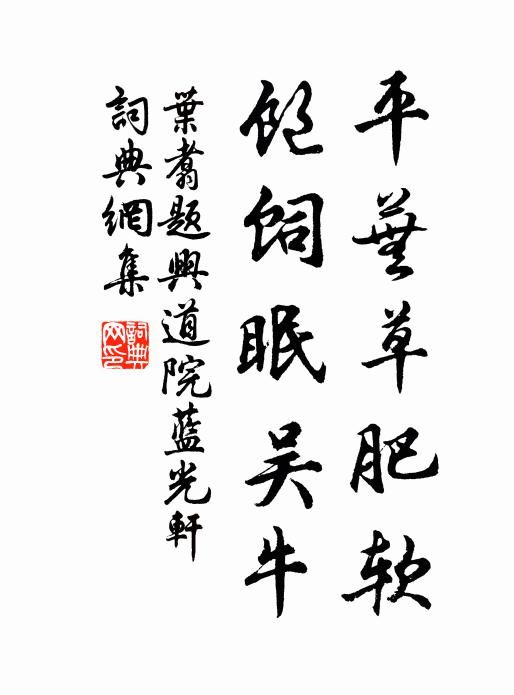 平蕪草肥软
飽饲眠吴牛
葉翥題興道院藍光軒
詞典網集
詞典網印